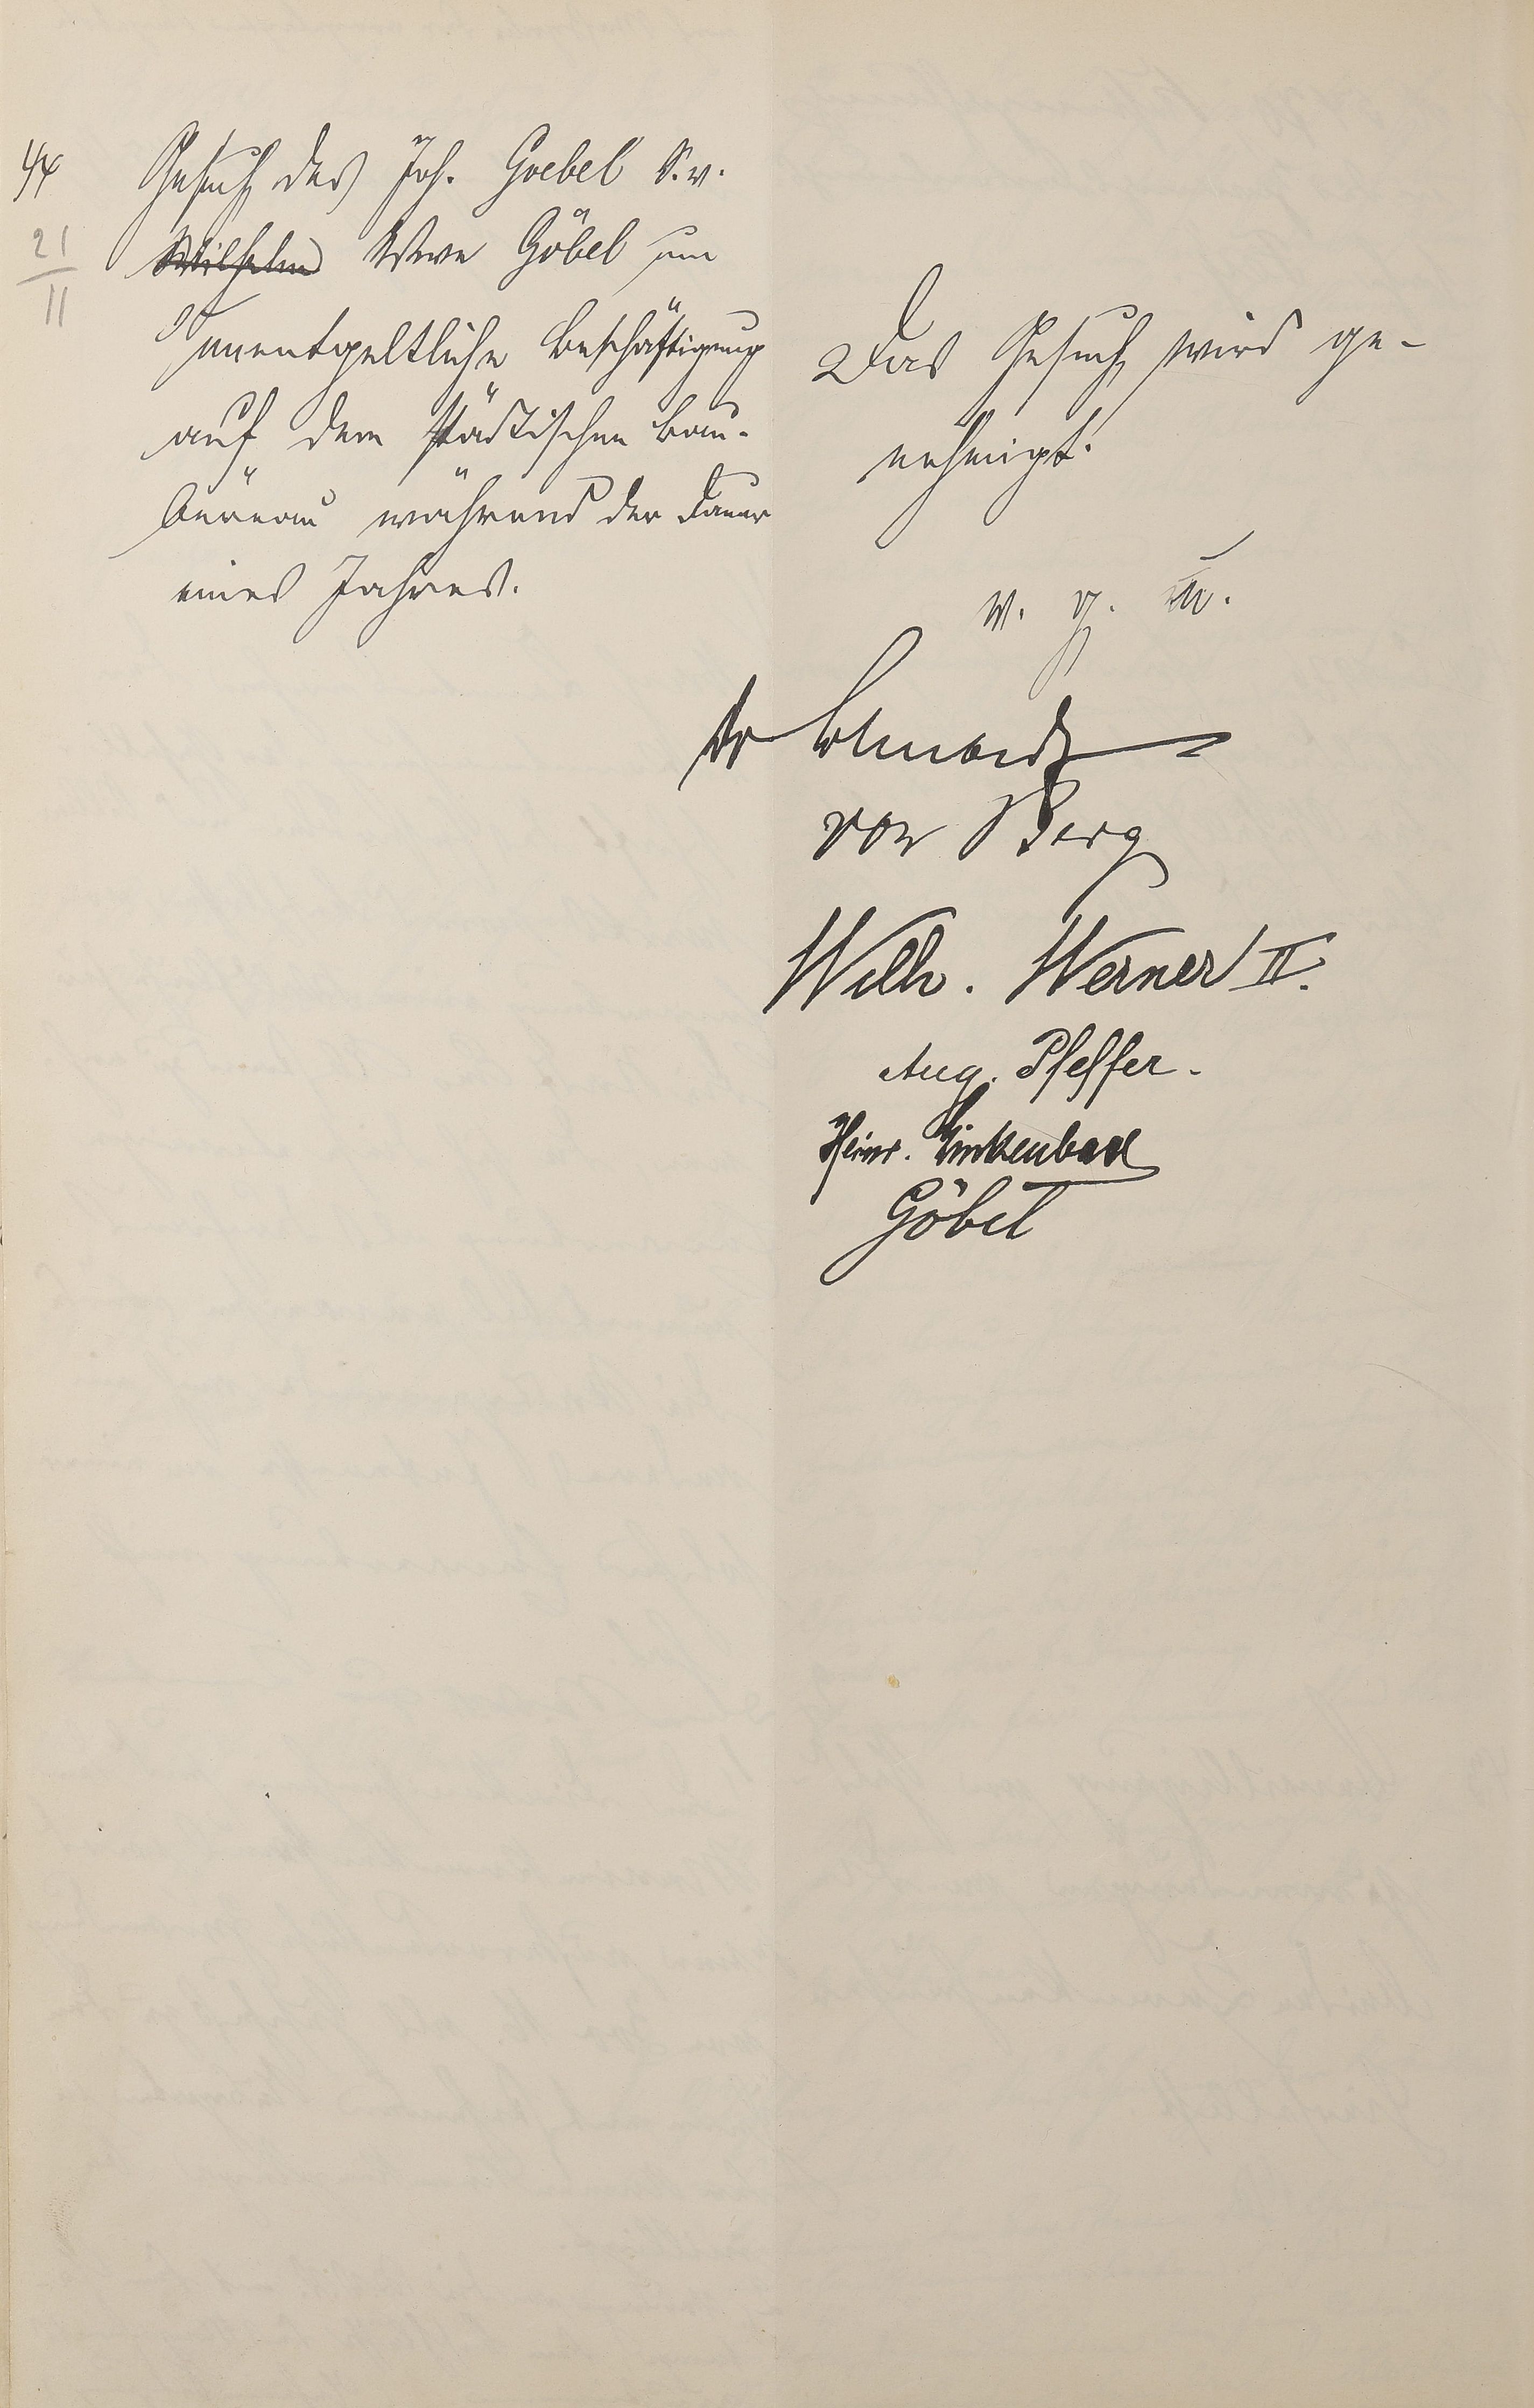 44
21
II
Gesuch des Joh. Goebel S. v.
Wilhelm Wwe Göbel um
unentgeltliche Beschäftigung
auf dem städtischen Bau-
büreau während der Dauer
eines Jahres.
Das Gesuch wird ge-
nehmigt.
v. g. u.
Dr
von Berg
Wilh. Werner II.
Aug. Pfeffer.
Heinr. Linkenbach
Göbel